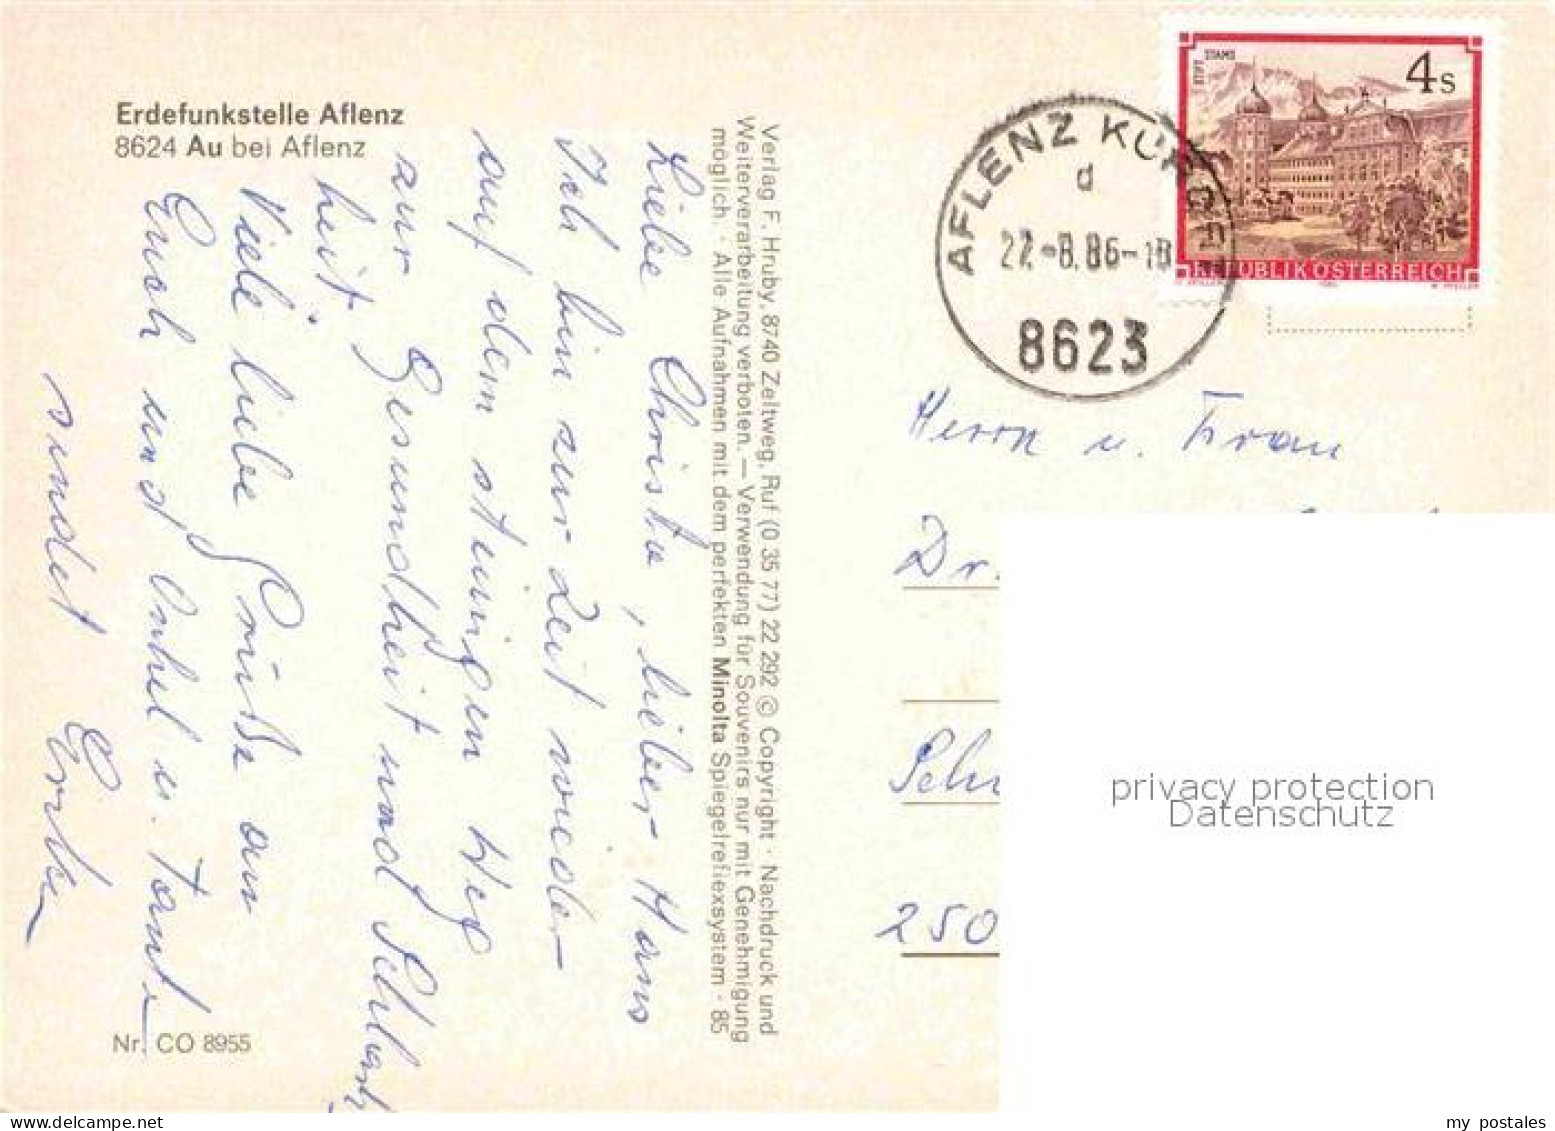 Erdefunkstelle Aflenz
8624 Au bei Aflenz
Liebe Christa, lieber Hans
Ich bin zur Zeit wieder
auf dem steinigen Weg
zur Gesundheit und Schlank
heit.
Viele liebe Grüße an
Euch und Onkel u. Tante
sendet
Nr. CO 8955
Verlag F. Hruby, 8740 Zeltweg, Ruf (0 35 77) 22 292 © Copyright · Nachdruck und
Weiterverarbeitung verboten. — Verwendung für Souvenirs nur mit Genehmigung
möglich. · Alle Aufnahmen mit dem perfekten Minolta Spiegelreflexsystem · 85
AFLENZ KURORT
d
22.-8.86-18
8623
STIFT STAMS
4s
REPUBLIK ÖSTERREICH
Herrn u. Frau
Dr.
Sch
250
privacy protection
Datenschutz
my postales